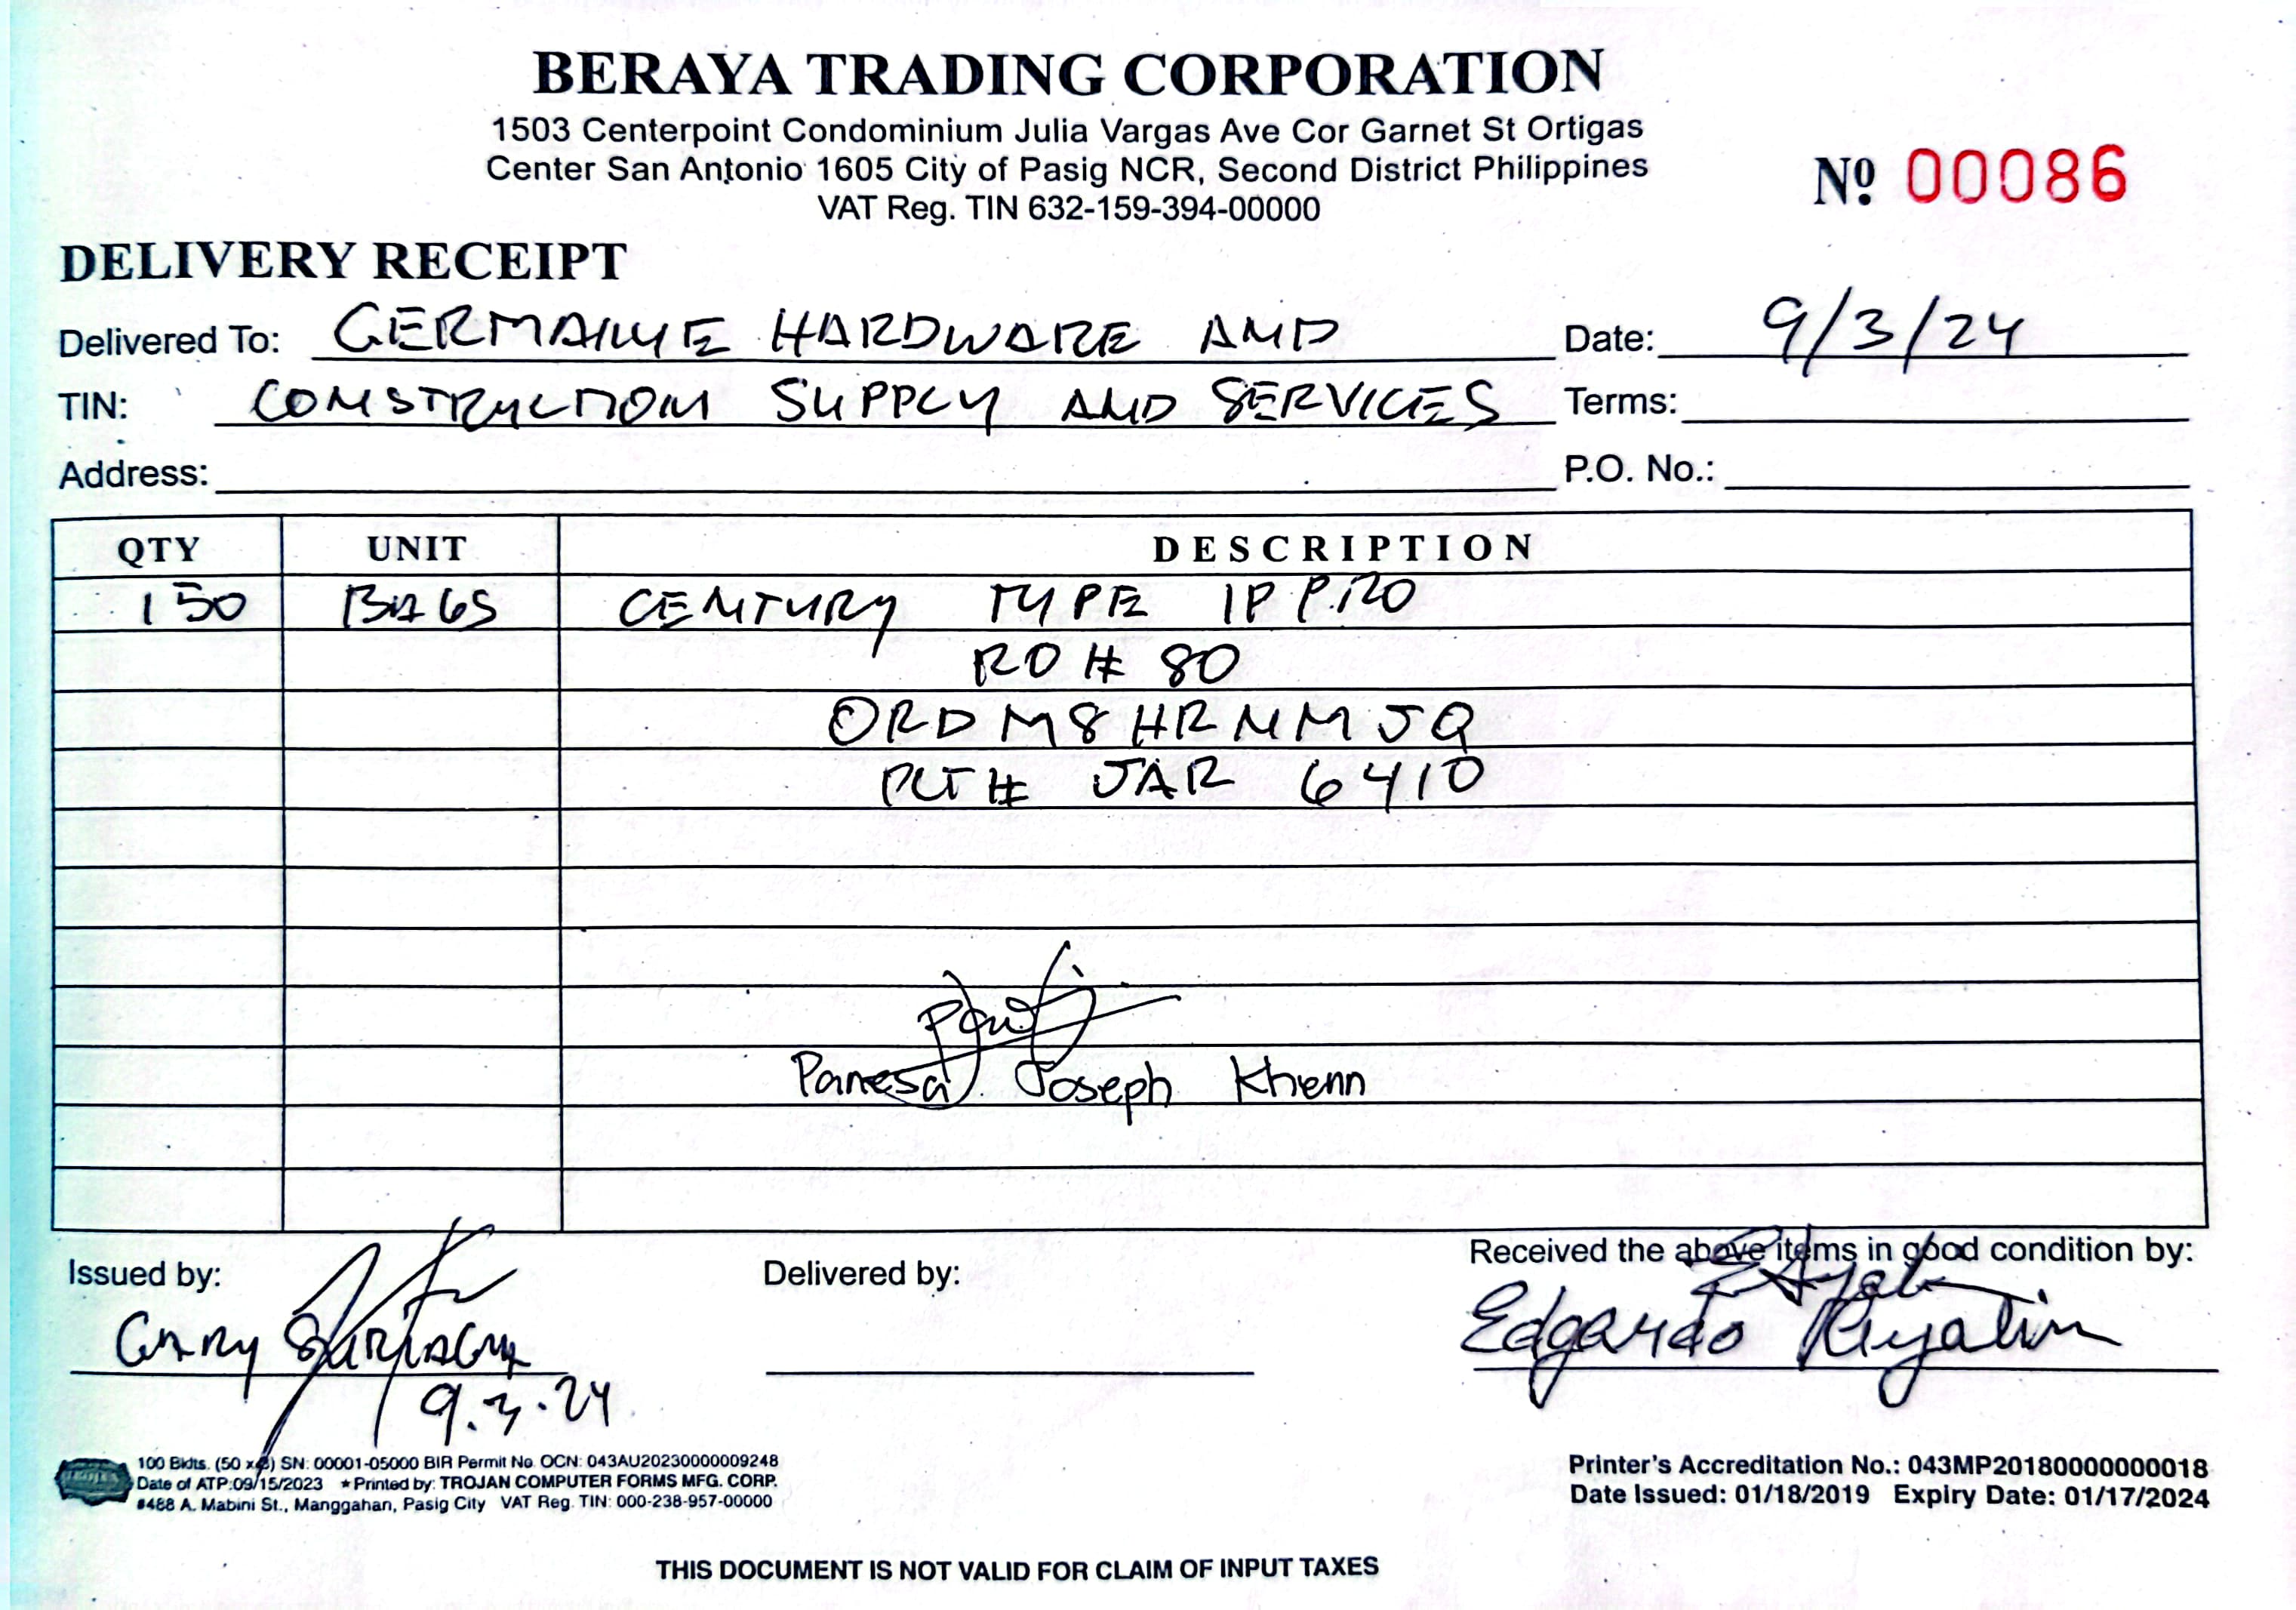 BERAYA TRADING CORPORATION
1503 Centerpoint Condominium Julia Vargas Ave Cor Garnet St Ortigas
Center San Antonio 1605 City of Pasig NCR, Second District Philippines
VAT Reg. TIN 632-159-394-00000
Nº 00086
DELIVERY RECEIPT
Delivered To: GERMAINE HARDWARE AND Date: 9/3/24
TIN: CONSTRUCTION SUPPLY AND SERVICES Terms:
Address: P.O. No.:
QTY UNIT DESCRIPTION
150 BAGS CENTURY TYPE 1P PRO
RO # 80
ORDM8HRNMJQ
PLT# JAR 6410
Panesa Joseph Khenn
Issued by: Delivered by: Received the above items in good condition by:
Edgardo
9.3.24
100 Bklts. (50 x) SN: 00001-05000 BIR Permit No. OCN: 043AU20230000009248
Date of ATP:09/15/2023 ★Printed by: TROJAN COMPUTER FORMS MFG. CORP.
#488 A. Mabini St., Manggahan, Pasig City VAT Reg. TIN: 000-238-957-00000
Printer's Accreditation No.: 043MP20180000000018
Date Issued: 01/18/2019 Expiry Date: 01/17/2024
THIS DOCUMENT IS NOT VALID FOR CLAIM OF INPUT TAXES